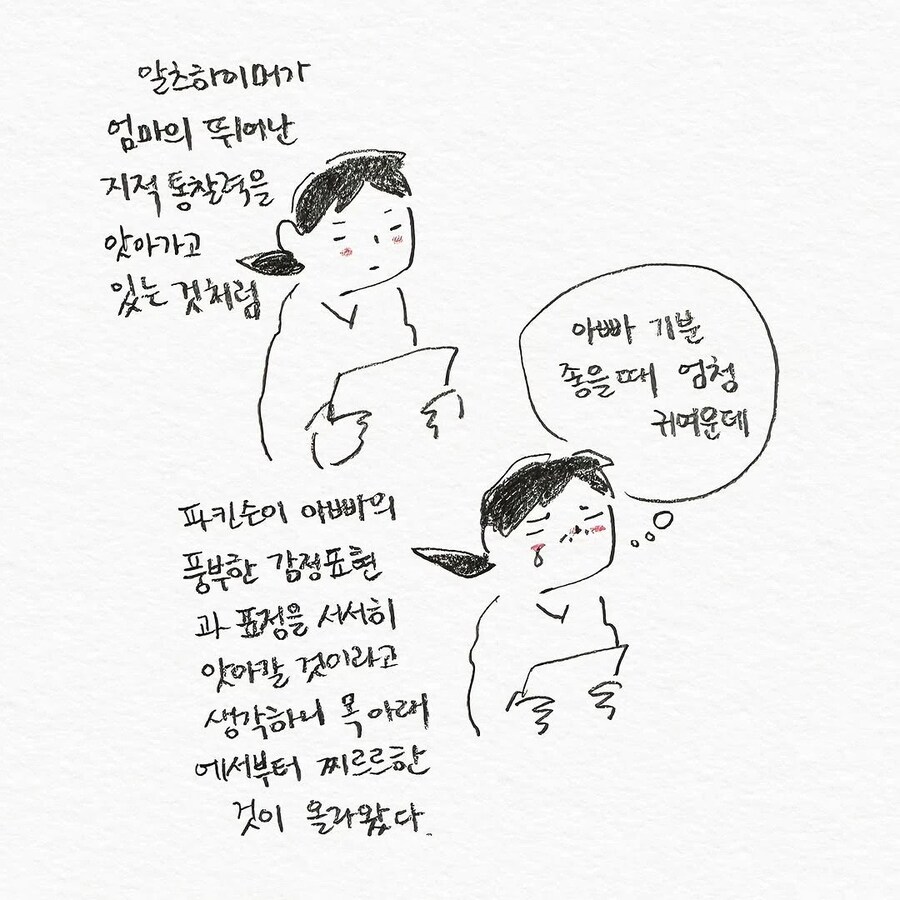 알츠하이머가
엄마의 뛰어난
지적 통찰력을
앗아가고
있는 것처럼
아빠 기분
좋을때 엄청
귀여운데
파킨슨이 아빠의
풍부한 감정표현
과 표정을 서서히
앗아갈 것이라고
생각하니 목 아래
에서부터 찌르르한
것이 올라왔다.